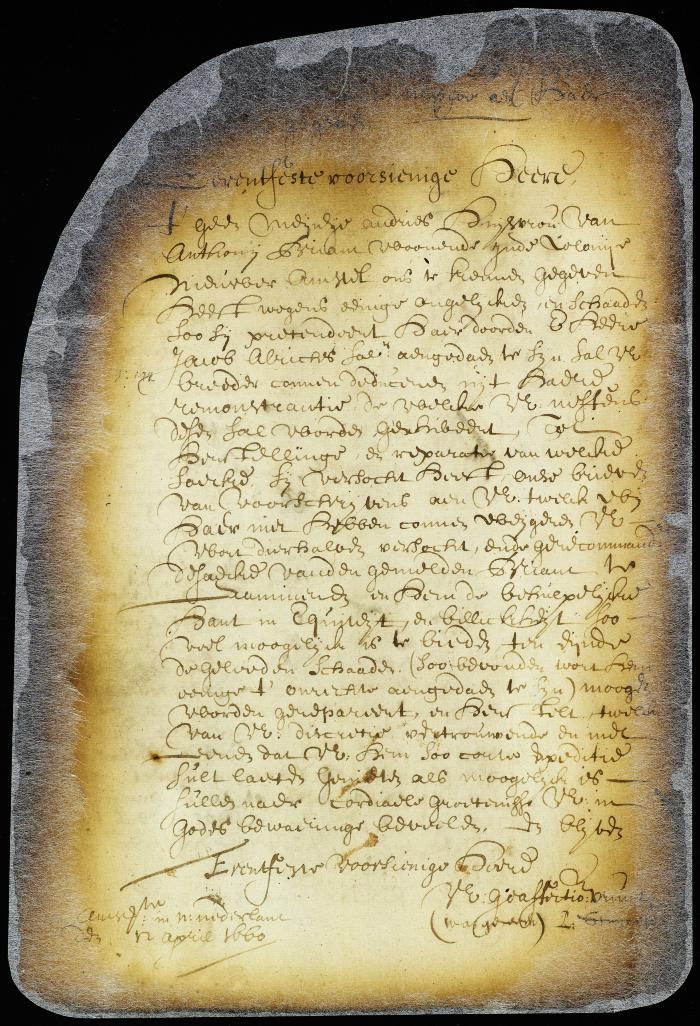 Erentfeste voorsienige Heere,
t' geen Meijnsje Andries Huijsvrou van
Anthony Briant woonende inde Colonije
Nieuwer Amstel ons te kennen gegeven
heeft wegens eenige ongelijcken en schaaden
soo sij pretendeert haer door den E Heere
Jacob Alrichs Sal.r aengedaen te sijn sal UE
breeder connen deduceren uijt haere
remonstrantie de welcke UE neffens
desen sal worden gerhibeert, Tot
herstellinge en reparatie van welcke
saecke sij versocht heeft onse brieven
van voorschrijvens aen UE twelck wij
haer niet hebben connen weijgeren UE
wort dierhalven versocht, ende gerecommand
de saecke vanden gemelden Briant te
examineren en hem de behulpelijcke
hant in Equiteijt en billickheijt soo
veel moogelijck is te bieden ten eijnde
de geleeden schaaden (soo bevonden wort hem
eenige t' onrechte aengedaen te sijn) moogen
worden gerepareert, en herstelt, twelck
van UE discretie vertrouwende en niet
teenen dat UE hem soo corte expeditie
sult laeten genieten als moogelijck is
sullen naer cordiaele groetenisse UE in
Godes bewaeringe beveelen. En blijven
Erentfeste voorsienige Heere
UE: Geaffectio: vrint
(was geteeck)
Amst: in N: nederlant
den 12 April 1660